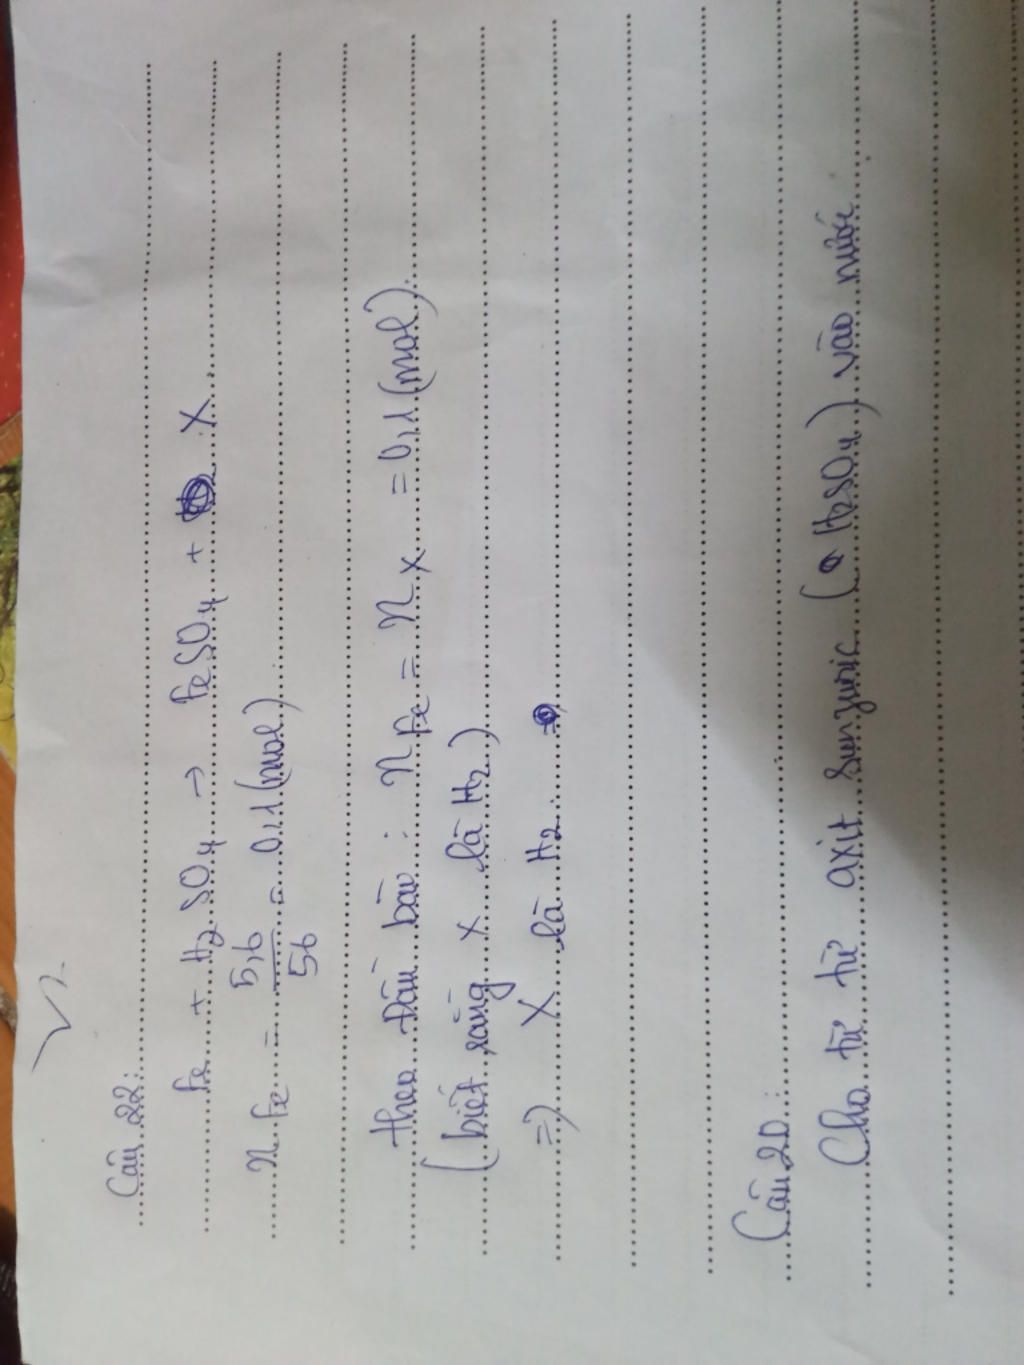 Câu 22:
Fe + H2SO4 → FeSO4 + X
n Fe = 5,6 / 56 = 0,1 (mol)
theo Đầu bào : n Fe = n X = 0,1 (mol)
(biết rằng X là H2)
=> X là H2
Câu 20:
Cho từ từ axit sunzuric (H2SO4) vào nước